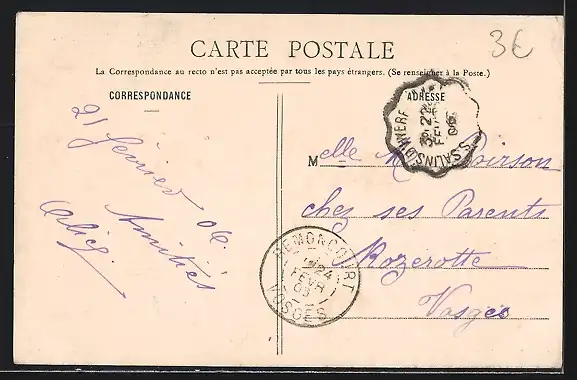 3€
CARTE POSTALE
La Correspondance au recto n'est pas acceptée par tous les pays étrangers. (Se renseigner à la Poste.)
CORRESPONDANCE
21 février 06
Amitiés
ADRESSE
22
FEVR
06
Melle M Poirson
chez ses Parents
Rozerotte
Vosges
REMONCOURT
24
FEVR
06
VOSGES